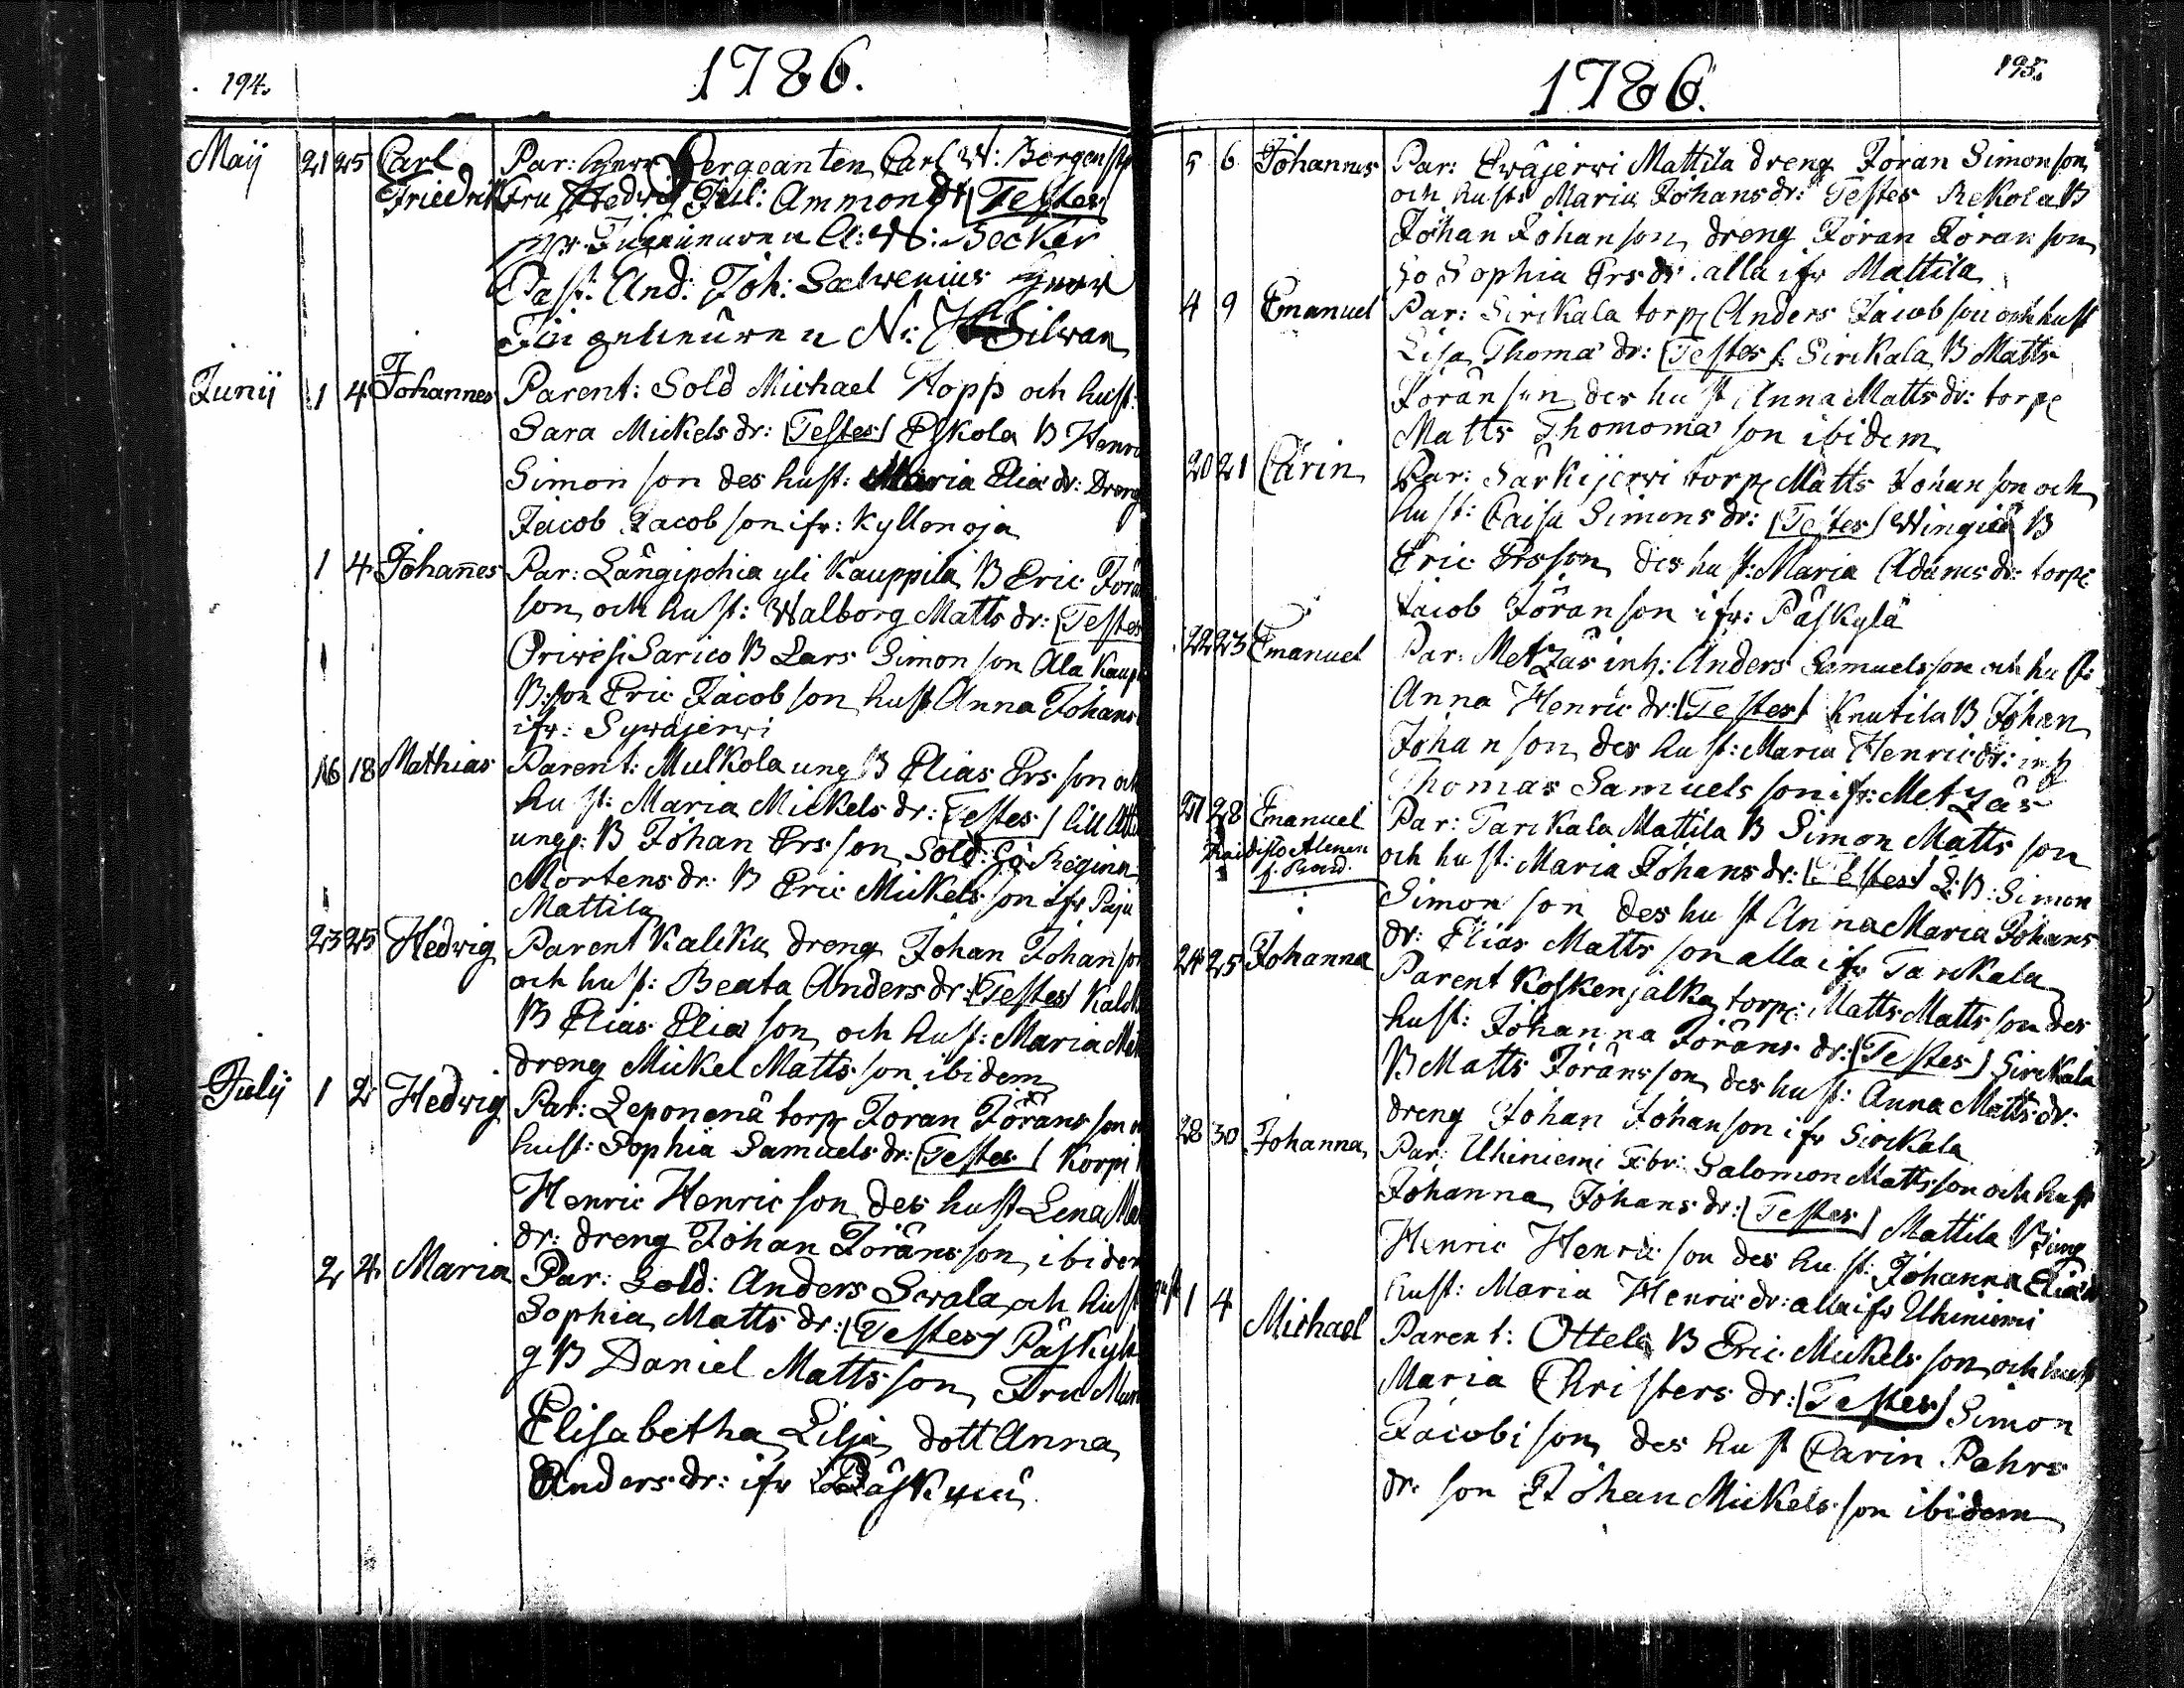 194.
1786.
Maij 21 25 Carl Par: Herr Sergeanten Carl W: Bergenst
Friedrik Fru Hedvig Jul: Ammondt Testes
Hr Ingenieuren C: W: Becker
Past: And: Joh: Salvenius Herr
Ingenieuren N: Silvan
Junij 1 4 Johannes Parent: Sold Michael Hopp och hust:
Sara Mickels dr: Testes Eskola B Henri
Simon son des hust: Maria Elia dr: Dreng
Jacob Jacob son ifr: Kyllenoja
1 4 Johan̄es Par: Långipohia yli Kauppila B Eric Jöra
son och hust: Walborg Matts dr: Testes
Orivesi Sarico B Lars Simon son Ala Kaup
B: son Eric Jacob son hust Anna Johans
ifr: Sywäjerwi
16 18 Mathias Parent: Mulkola ung B Elias Ers son och
hust: Maria Mickels dr: Testes lill
ung: B Johan Ers son Sold: Regina
Mortens dr: B Eric Mickels son ifr Paju
Mattila
23 25 Hedvig Parent Kalcku dreng Johan Johan son
och hust: Beata Anders dr: Testes Kalck
B Elias Elia son och hust: Maria
dreng Mickel Matts son ibidem
Julij 1 2 Hedvig Par: Leponenä torp Joran Jörans son
hust: Sophia Samuels dr: Testes Korpi
Henric Henric son des hust Lena
dr: dreng Johan Jörans son ibidem
2 2 Maria Par: Sold: Anders Swala och hust
Sophia Matts dr: Testes Päskyl
g B Daniel Matts son Fru
Elisabetha Lilja dott Anna
Anders dr: ifr
195.
1786.
5 6 Johannes Par: Ewäjerwi Mattila dreng Joran Simon son
och hust: Maria Johans dr: Testes Rekola B
Johan Johan son dreng Joran Joran son
Sophia Ers dr. alla ifr Mattila
4 9 Emanuel Par: Sirckala torp Anders Jacob son och hust
Lisa Thoma dr: Testes Sirckala B Matts
Joran son des hust Anna Matts dr: torp
Matts Thomoma son ibidem
20 21 Carin Par: Särkijerwi torp Matts Johan son och
hust: Caisa Simons dr: Testes B
Eric Ersson des hust: Maria Adams dr: torp
Jacob Jöran son ifr: Päskylä
22 23 Emanuel Par: Metzäs inh: Anders Samuels son och hust:
Anna Henric dr: Testes Knutila B Johan
Johan son des hust: Maria Henric dr: inh
Thomas Samuels son ifr: Metzäs
28 Emanuel Par: Tarckala Mattila B Simon Matts son
och hust: Maria Johans dr: Testes L: B: Simon
Simon son des hust Anna Maria Johans
dr: Elias Matts son alla ifr Tarckala
24 25 Johanna Parent Koskenjalka torp: Matts Matts son des
hust: Johanna Jörans dr: Testes Sirckala
B Matts Jörans son des hust: Anna Matts dr:
dreng Johan Johan son ifr Sirckala
28 30 Johanna Par: Uhiniemi Salomon Matts son och hust
Johanna Johans dr: Testes Mattila B
Henric Henric son des hust: Johanna Elia
hust: Maria Henric dr: alla ifr Uhiniemi
1 4 Michael Parent: Ottela B Eric Mickels son och hust
Maria Christers dr: Testes Simon
Jacobi son des hust Carin Pehrs
dr: son Johan Mickels son ibidem